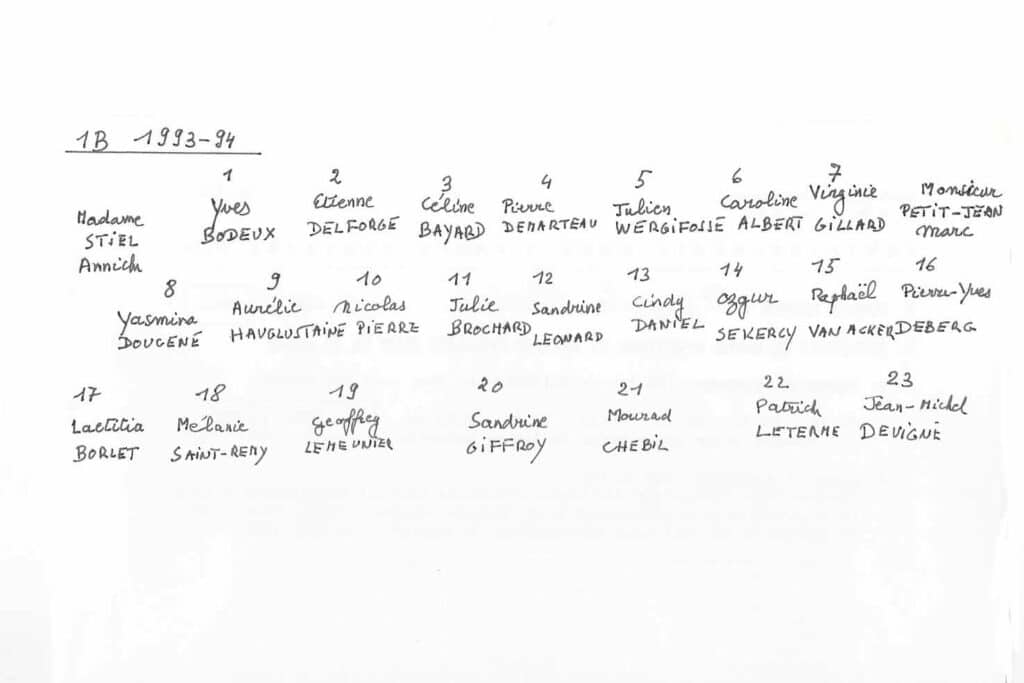 1B 1993-94
1 2 3 4 5 6 7
Madame STIEL Annick Yves BODEUX Etienne DELFORGE Céline BAYARD Pierre DEMARTEAU Julien WERGIFOSSE Caroline ALBERT Virginie GILLARD Monsieur PETIT-JEAN Marc
8 9 10 11 12 13 14 15 16
Yasmina Aurélie Nicolas Julie Sandrine Cindy Ozgur Raphaël Pierre-Yves
DOUGENÉ HAUGLUSTAINE PIERRE BROCHARD LEONARD DANIEL SEKERCY VAN ACKER DEBERG
17 18 19 20 21 22 23
Laetitia Mélanie Geoffrey Sandrine Mourad Patrick Jean-Michel
BORLET SAINT-REMY LEMEUNIER GIFFROY CHEBIL LETERME DEVIGNE